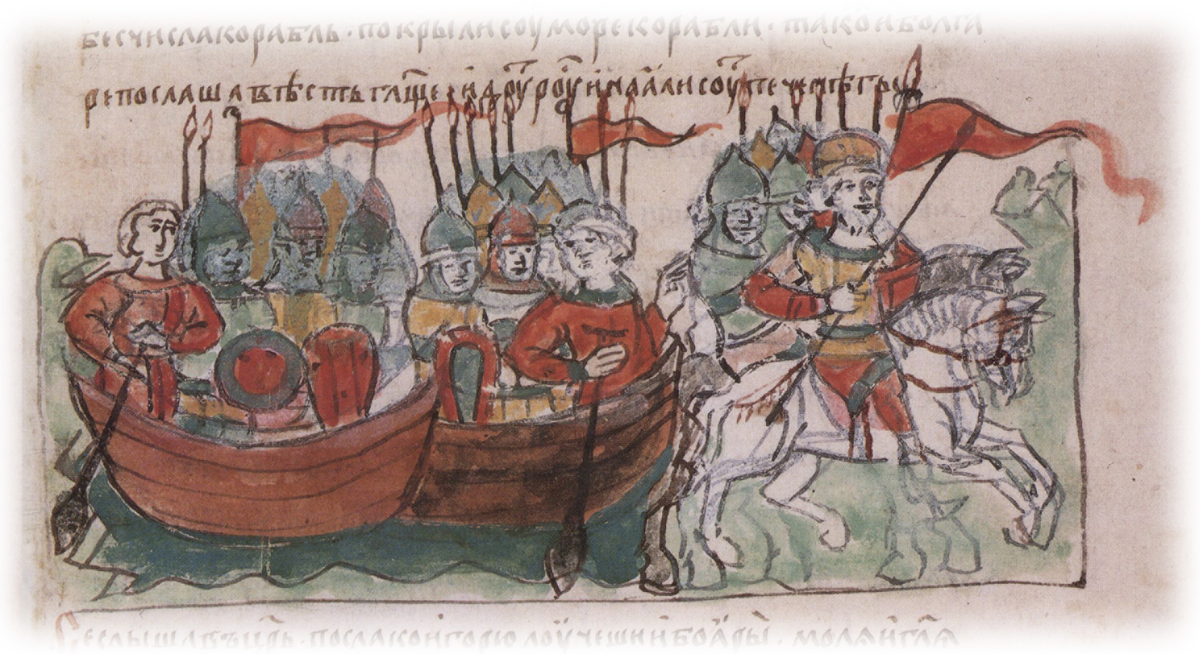 бесчисла корабль · покрыли соу море корабли · тако и болга
ре послаша вѣсть гл҃ще · идоуⷮ роуⷭ и наꙗли соуⷮ печенѣгы
Се слышавъ цр҃ь · посла к игорю лоучешии боꙗры · молѧ и гл҃ѧ